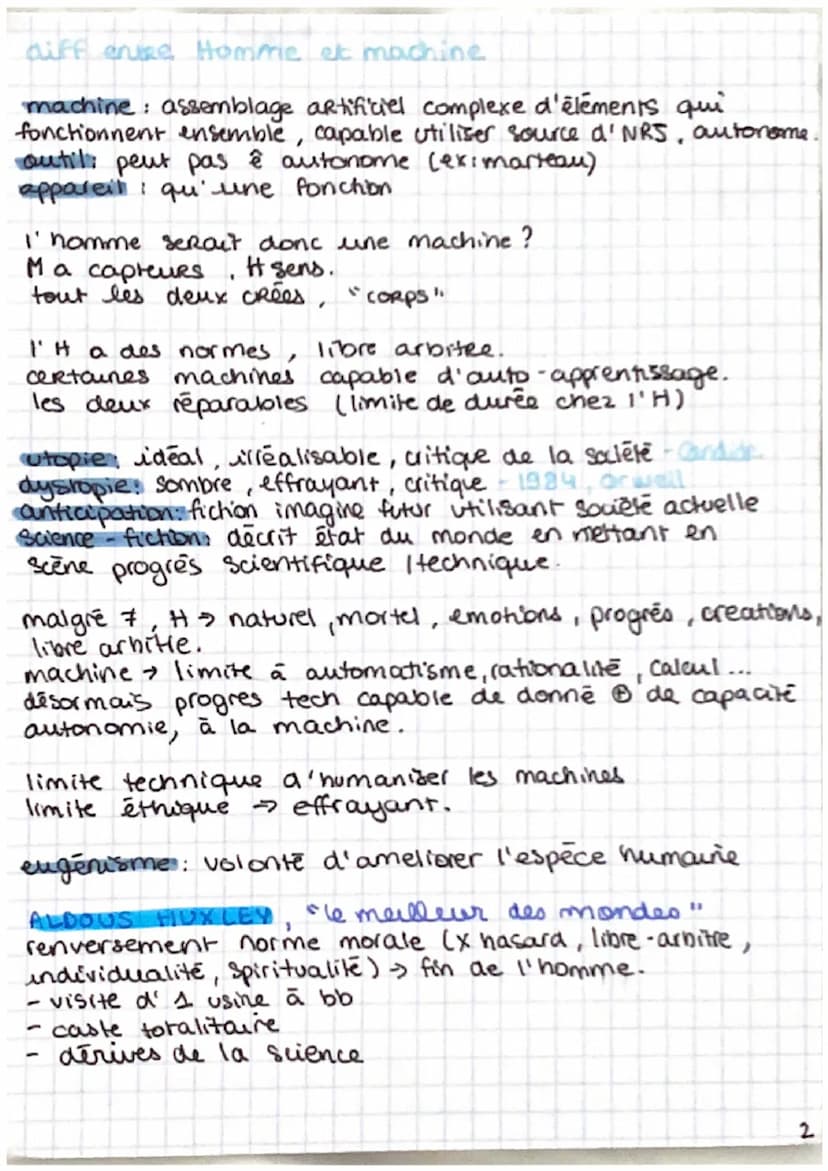 diff entre Homme et machine
machine : assemblage artificiel complexe d'éléments qui
fonctionnent ensemble, capable utiliser source d'NRJ, autonome.
outil : peut pas ê autonome (ex: marteau)
appareil : qu'une fonction
l'homme serait donc une machine ?
M a capteurs, H sens.
tout les deux crées, "corps"
l'H a des normes, libre arbitre.
certaines machines capable d'auto-apprentissage.
les deux réparables (limite de durée chez l'H)
utopie : idéal, irréalisable, critique de la société - Candide
dystopie : sombre, effrayant, critique - 1984, orwell
anticipation : fiction imagine futur utilisant société actuelle
Science-fiction : décrit état du monde en mettant en
scène progrès scientifique / technique.
malgré ≠, H → naturel, mortel, emotions, progrés, creations,
libre arbitre.
machine → limite à automatisme, rationalité, calcul ...
désormais progres tech capable de donné ⊕ de capacité
autonomie, à la machine.
limite technique a'humaniser les machines
limite éthique → effrayant.
eugénisme : volonté d'ameliorer l'espèce humaine
ALDOUS HUXLEY, "le meilleur des mondes"
renversement norme morale (x hasard, libre-arbitre,
individualité, spiritualité) → fin de l'homme.
- visite d'1 usine à bb
- caste totalitaire
- dérives de la science
2